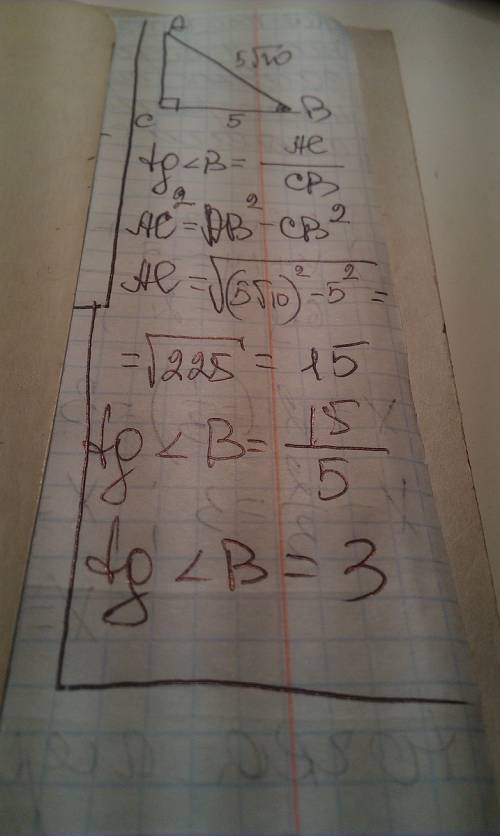 A
5√10
C 5 B
tg <B= AC/CB
AC²=AB²-CB²
AC=√(5√10)²-5² =
=√225 = 15
tg <B= 15/5
tg <B= 3